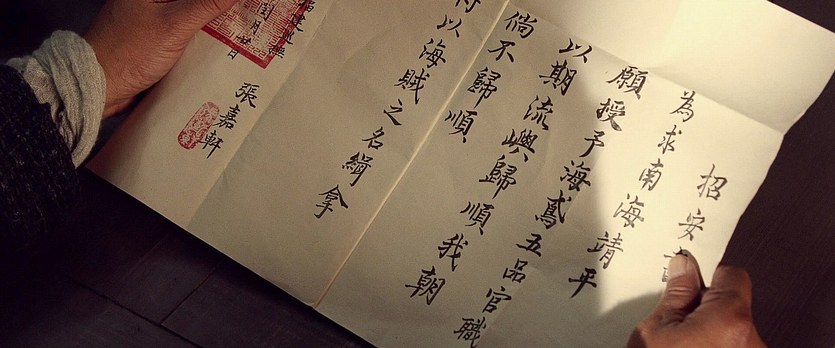 招安
為求南海靖平
願授予海鳶五品官職
以期流嶼歸順我朝
倘不歸順
以海賊之名緝拿
月廿日
張嘉軒